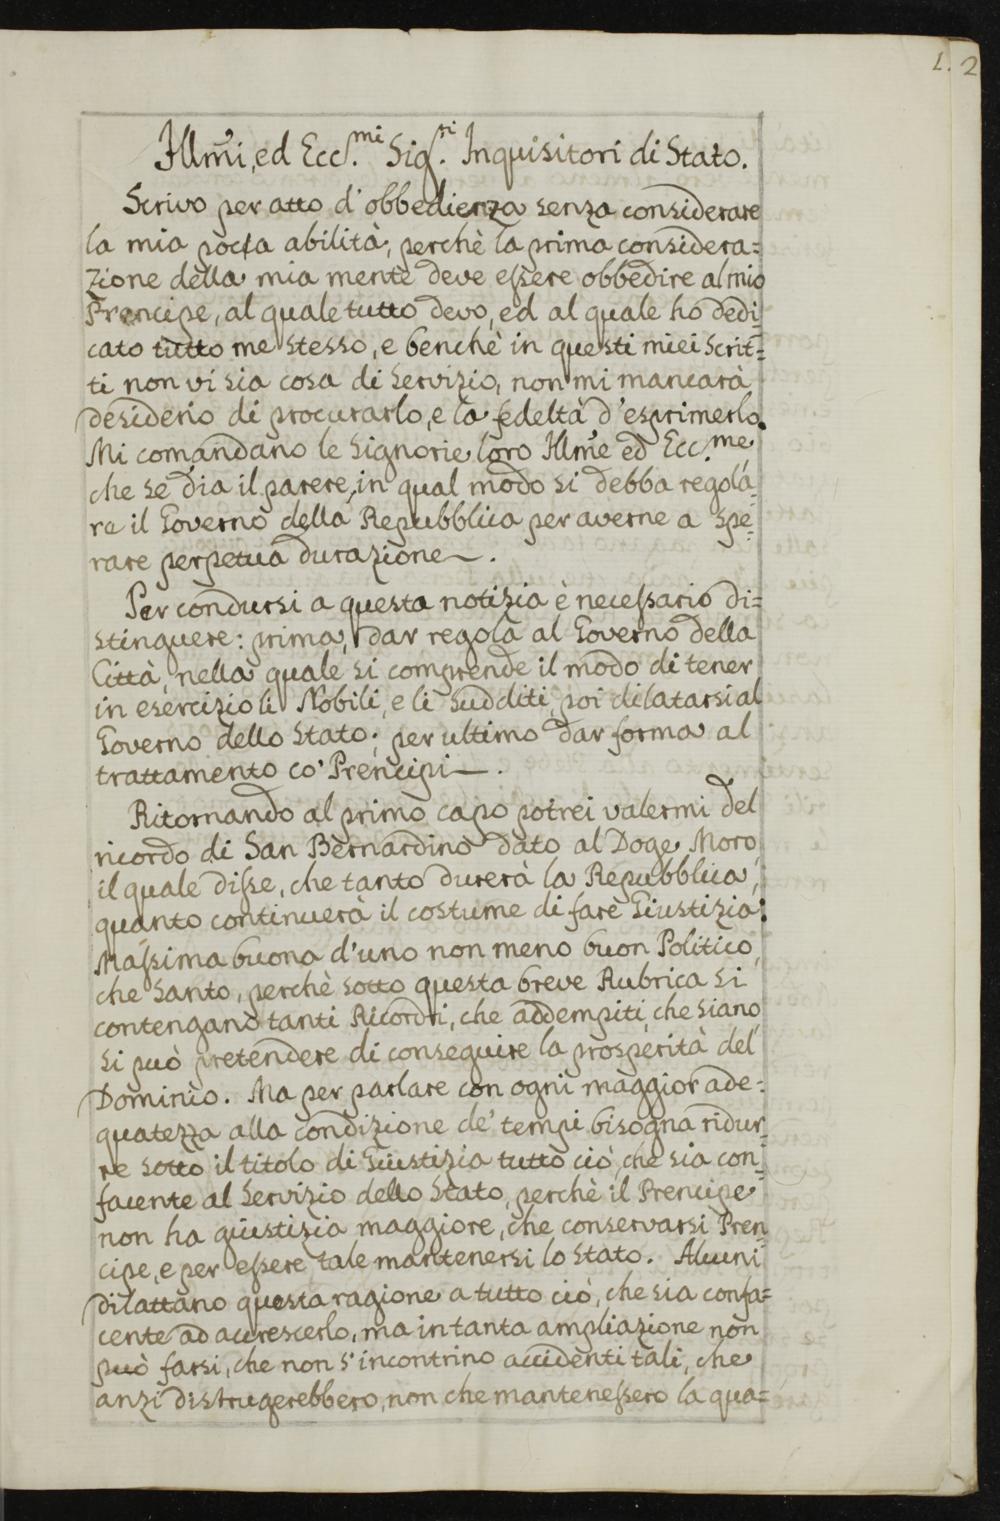 L. 2
Illmi, ed Ecc.mi Sig.ri Inquisitori di Stato.
Scrivo per atto d'obbedienza senza considerare
la mia pocca abilità, perchè la prima considera=
zione della mia mente deve essere obbedire al mio
Prencipe, al quale tutto devo, ed al quale ho dedi=
cato tutto me stesso, e benchè in questi miei Scrit=
ti non vi sia cosa di Servizio, non mi mancarà
desiderio di procurarlo, e la fedeltà d'esprimerlo.
Mi comandano le Signorie loro Illme ed Ecc.me
che se dia il parere, in qual modo si debba regola=
re il Governo della Repubblica per averne a spe=
rare perpetua durazione—.
Per condursi a questa notizia è necessario di=
stinguere: prima, dar regola al Governo della
Città, nella quale si comprende il modo di tener
in esercizio li Nobili, e li Sudditi, poi dilatarsi al
Governo dello Stato; per ultimo dar forma al
trattamento co' Prencipi—.
Ritornando al primo capo potrei valermi del
ricordo di San Bernardino dato al Doge Moro
il quale disse, che tanto durerà la Repubblica,
quanto continuerà il costume di fare Giustizia:
Massima buona d'uno non meno buon Politico,
che Santo, perchè sotto questa breve Rubrica si
contengano tanti Ricordri, che addempiti, che siano
si può pretendere di conseguire la prosperità del
Dominio. Ma per parlare con ogni maggior ade=
quatezza alla condizione de' tempi bisogna ridur=
re sotto il titolo di Giustizia tutto ciò, che sia con=
facente al Servizio dello Stato, perchè il Prencipe
non ha giustizia maggiore, che conservarsi Pren
cipe, e per essere tale mantenersi lo Stato. Alcuni
dilattano questa ragione a tutto ciò, che sia confa=
cente ad accrescerlo, ma in tanta ampliazione non
può farsi, che non s'incontrino accidenti tali, che
anzi distrugerebbero, non che mantenessero la qua=